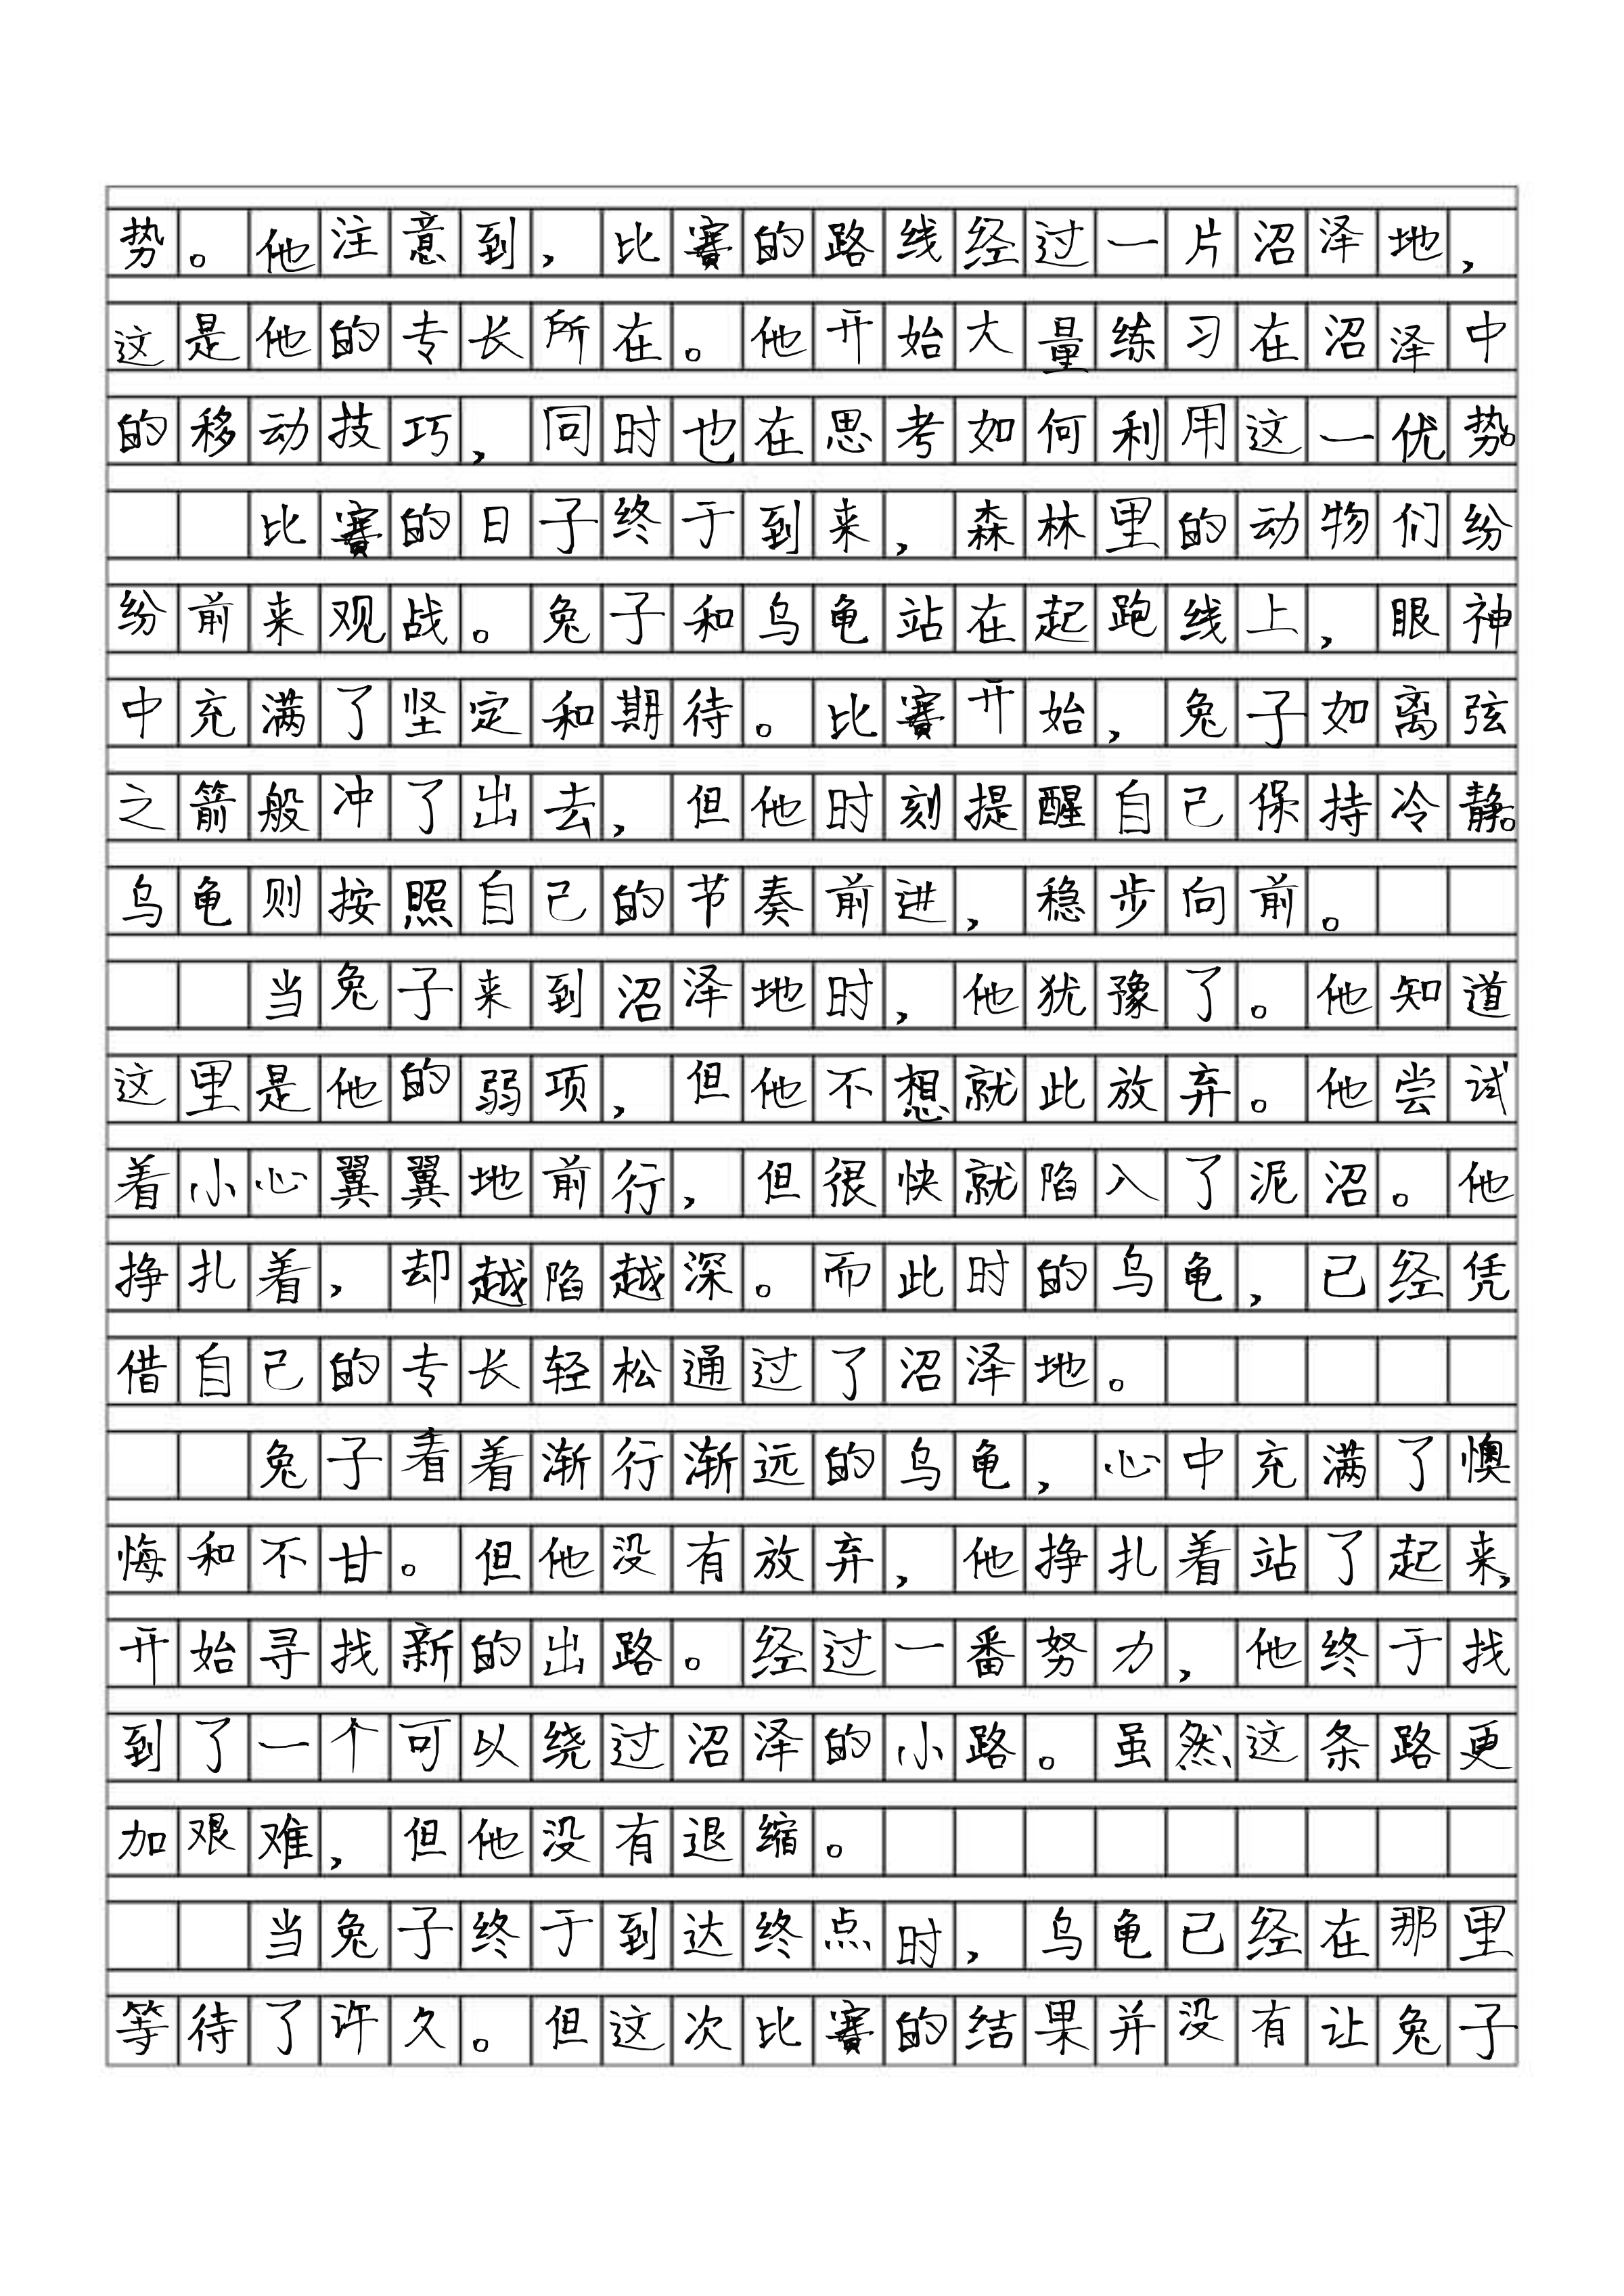 势。他注意到，比赛的路线经过一片沼泽地，
这是他的专长所在。他开始大量练习在沼泽中
的移动技巧，同时也在思考如何利用这一优势。
比赛的日子终于到来，森林里的动物们纷
纷前来观战。兔子和乌龟站在起跑线上，眼神
中充满了坚定和期待。比赛开始，兔子如离弦
之箭般冲了出去，但他时刻提醒自己保持冷静。
乌龟则按照自己的节奏前进，稳步向前。
当兔子来到沼泽地时，他犹豫了。他知道
这里是他的弱项，但他不想就此放弃。他尝试
着小心翼翼地前行，但很快就陷入了泥沼。他
挣扎着，却越陷越深。而此时的乌龟，已经凭
借自己的专长轻松通过了沼泽地。
兔子看着渐行渐远的乌龟，心中充满了懊
悔和不甘。但他没有放弃，他挣扎着站了起来，
开始寻找新的出路。经过一番努力，他终于找
到了一个可以绕过沼泽的小路。虽然这条路更
加艰难，但他没有退缩。
当兔子终于到达终点时，乌龟已经在那里
等待了许久。但这次比赛的结果并没有让兔子